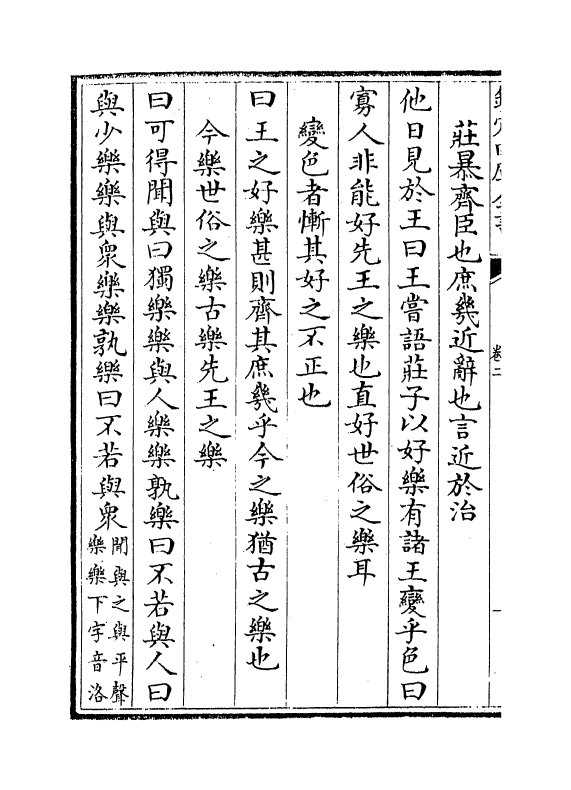 欽定四庫全書
卷二
莊暴齊臣也庶幾近辭也言近於治
他日見於王曰王嘗語莊子以好樂有諸王變乎色曰
寡人非能好先王之樂也直好世俗之樂耳
變色者慚其好之不正也
曰王之好樂甚則齊其庶幾乎今之樂猶古之樂也
今樂世俗之樂古樂先王之樂
曰可得聞與曰獨樂樂與人樂樂孰樂曰不若與人曰
與少樂樂與衆樂樂孰樂曰不若與衆
聞與之與平聲
樂樂下字音洛